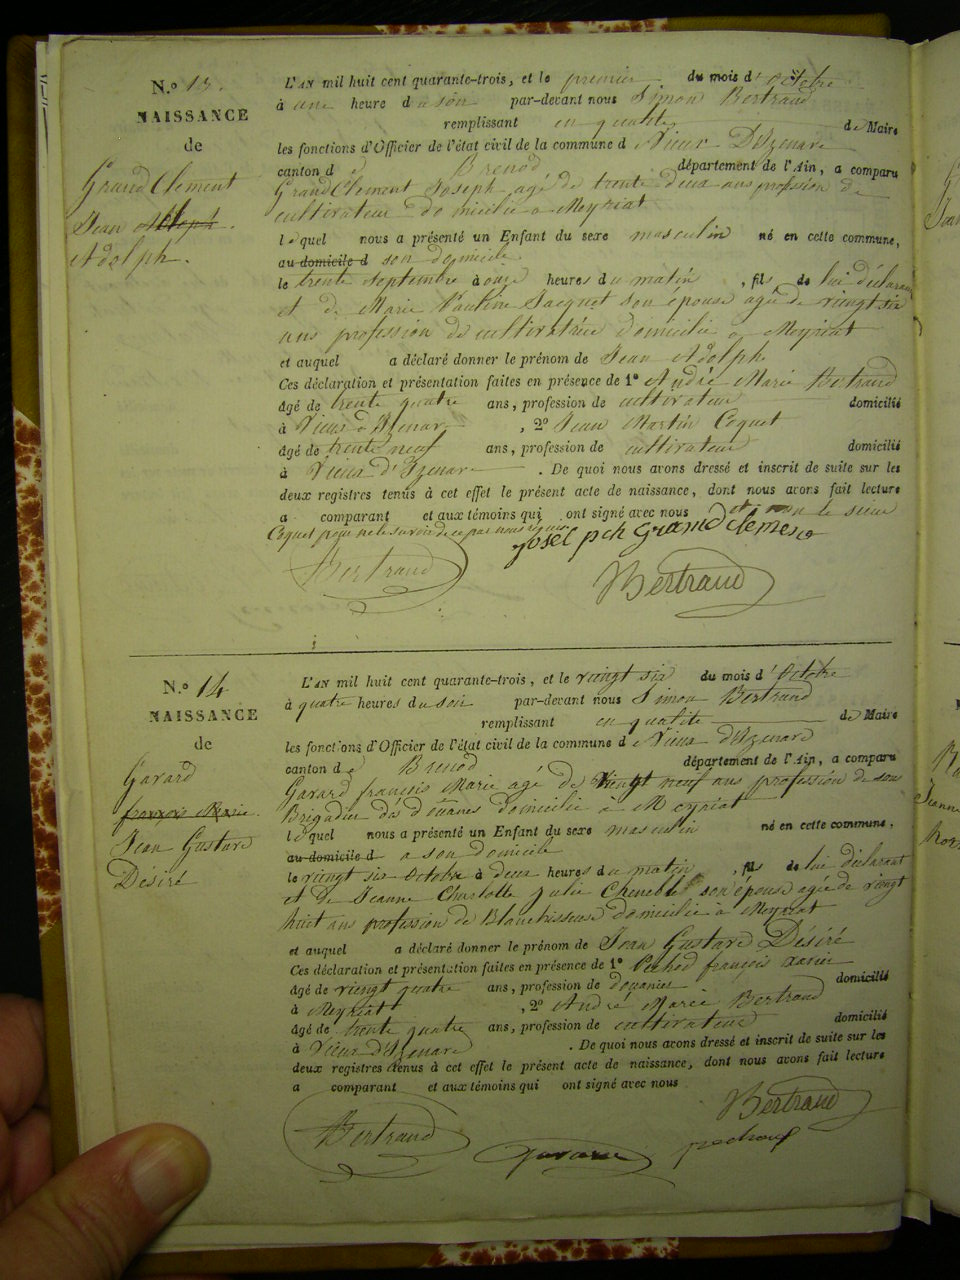 N.º 13.
NAISSANCE
de
Grand Clement
Jean
Adolph.
L'AN mil huit cent quarante-trois, et le premier du mois d'Octobre
à une heure du soir par-devant nous Simon Bertrand
remplissant en qualité de Maire
les fonctions d'Officier de l'état civil de la commune d Vieux D'Izenare
canton d e Brenod département de l'Ain, a comparu
Grand Clement Joseph agé de trente deux ans profession de
cultivateur domicilié a Meyriat
lequel nous a présenté un Enfant du sexe masculin né en cette commune,
au domicile d son domicile
le trente septembre à onze heures du matin, fils de lui déclarant
et de Marie Pauline Jacquet son épouse agé de vingt six
ans profession de cultivatrice domicilié a Meyriat
et auquel a déclaré donner le prénom de Jean Adolph
Ces déclaration et présentation faites en présence de 1º André Marie Bertrand
âgé de trente quatre ans, profession de cultivateur domicilié
à Vieux d'Izenare, 2º Jean Martin Coquet
âgé de trente neuf ans, profession de cultivateur domicilié
à Vieux d'Izenare. De quoi nous avons dressé et inscrit de suite sur les
deux registres tenus à cet effet le présent acte de naissance, dont nous avons fait lecture
a comparant et aux témoins qui ont signé avec nous et non le sieur
Coquet pour ne le savoir de ce par nous requis
Joseph Grand Clement
Bertrand
Bertrand
N.º 14
NAISSANCE
de
Gavard
françois Marie.
Jean Gustave
Désiré
L'AN mil huit cent quarante-trois, et le vingt six du mois d'Octobre
à quatre heures du soir par-devant nous Simon Bertrand
remplissant en qualité de Maire
les fonctions d'Officier de l'état civil de la commune d e Vieux d'Izenare
canton d e Brenod département de l'Ain, a comparu
Gavard françois Marie agé de vingt neuf ans profession de sous
Brigadier dès douanes domicilié a Meyriat
lequel nous a présenté un Enfant du sexe masculin né en cette commune,
au domicile d a son domicile
le vingt six Octobre à deux heures du matin, fils de lui déclarant
et de Jeanne Charlotte Julie son épouse agée de vingt
huit ans profession de Blanchisseuse domicilié à Meyriat
et auquel a déclaré donner le prénom de Jean Gustave Désiré
Ces déclaration et présentation faites en présence de 1º Pechod françois xavier
âgé de vingt quatre ans, profession de douanier domicilié
à Meyriat, 2º André Marie Bertrand
âgé de trente quatre ans, profession de cultivateur domicilié
à Vieux d'Izenare. De quoi nous avons dressé et inscrit de suite sur les
deux registres tenus à cet effet le présent acte de naissance, dont nous avons fait lecture
a comparant et aux témoins qui ont signé avec nous
Bertrand
Bertrand
Gavard
pechoux